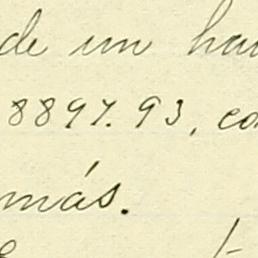 de un ha
8897.93, co
más.